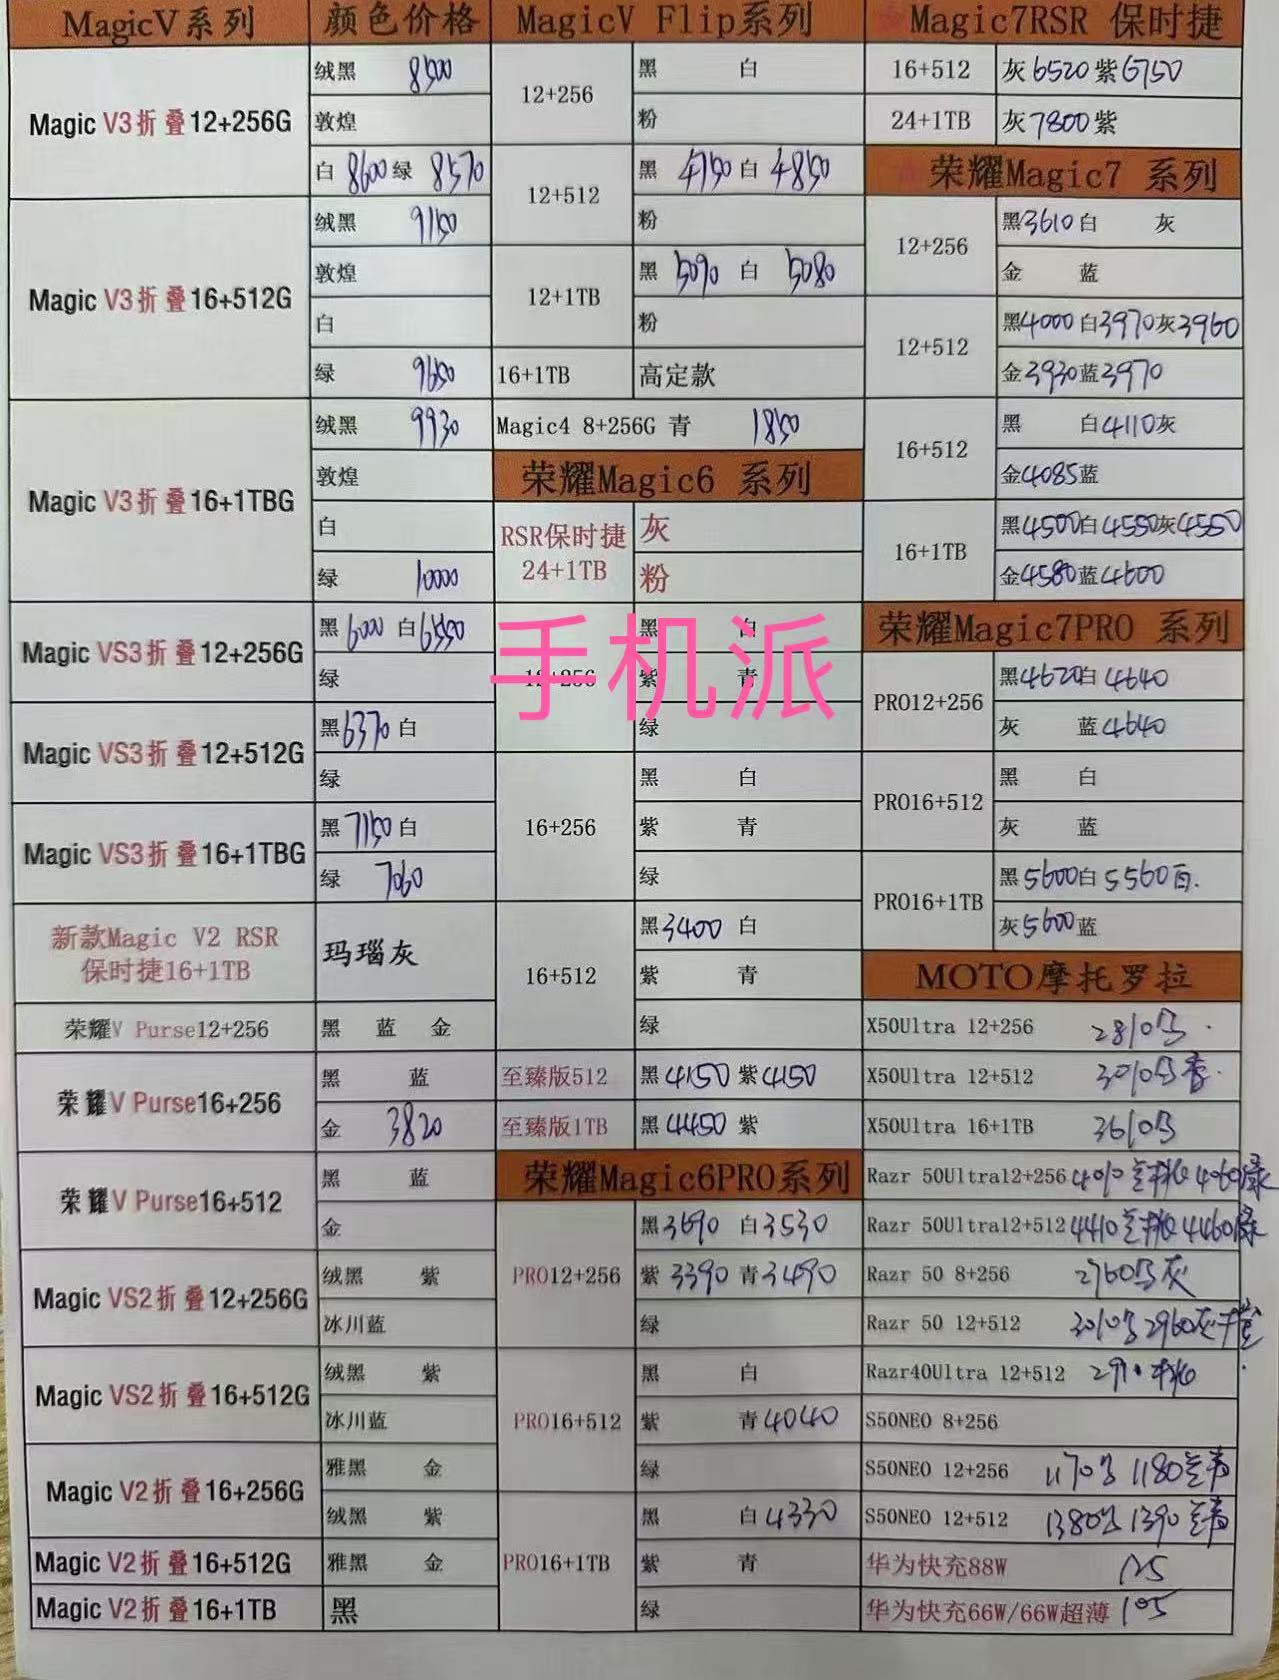 MagicV系列 颜色价格
Magic V3折叠12+256G
绒黑 8500
敦煌
白 8600 绿 8570
Magic V3折叠16+512G
绒黑 9150
敦煌
白
绿 9650
Magic V3折叠16+1TBG
绒黑 9930
敦煌
白
绿 10000
Magic VS3折叠12+256G
黑 6000 白 6550
绿
Magic VS3折叠12+512G
黑 6370 白
绿
Magic VS3折叠16+1TBG
黑 7150 白
绿 7060
新款Magic V2 RSR
保时捷16+1TB
玛瑙灰
荣耀V Purse12+256 黑 蓝 金
荣耀V Purse16+256
黑 蓝
金 3820
荣耀V Purse16+512
黑 蓝
金
Magic VS2折叠12+256G
绒黑 紫
冰川蓝
Magic VS2折叠16+512G
绒黑 紫
冰川蓝
Magic V2折叠16+256G
雅黑 金
绒黑 紫
Magic V2折叠16+512G 雅黑 金
Magic V2折叠16+1TB 黑
MagicV Flip系列
12+256
黑 白
粉
12+512
黑 4750 白 4850
粉
12+1TB
黑 5090 白 5080
粉
16+1TB 高定款
Magic4 8+256G 青 1850
荣耀Magic6 系列
RSR保时捷
24+1TB
灰
粉
手机派
12+256
黑 白
紫 青
绿
16+256
黑 白
紫 青
绿
16+512
黑3400 白
紫 青
绿
至臻版512 黑4150 紫4150
至臻版1TB 黑4450 紫
荣耀Magic6PRO系列
PRO12+256
黑3690 白3530
紫3390 青3490
绿
PRO16+512
黑 白
紫 青4040
绿
PRO16+1TB
黑 白4330
紫 青
绿
Magic7RSR 保时捷
16+512 灰6520紫6750
24+1TB 灰7800紫
荣耀Magic7 系列
12+256
黑3610白 灰
金 蓝
12+512
黑4000白3970灰3960
金3930蓝3970
16+512
黑 白4110灰
金4085蓝
16+1TB
黑4500白4550灰4550
金4580蓝4600
荣耀Magic7PRO 系列
PRO12+256
黑4620白4640
灰 蓝4640
PRO16+512
黑 白
灰 蓝
PRO16+1TB
黑5600白5560
灰5600蓝
MOTO摩托罗拉
X50Ultra 12+256 2810
X50Ultra 12+512 3010
X50Ultra 16+1TB 3610
Razr 50Ultra12+256 4010 4060绿
Razr 50Ultra12+512 4410 4460绿
Razr 50 8+256 2760 灰
Razr 50 12+512 3010 2960灰
Razr40Ultra 12+512
S50NEO 8+256
S50NEO 12+256 1170 1180
S50NEO 12+512 1380 1390
华为快充88W 125
华为快充66W/66W超薄 105